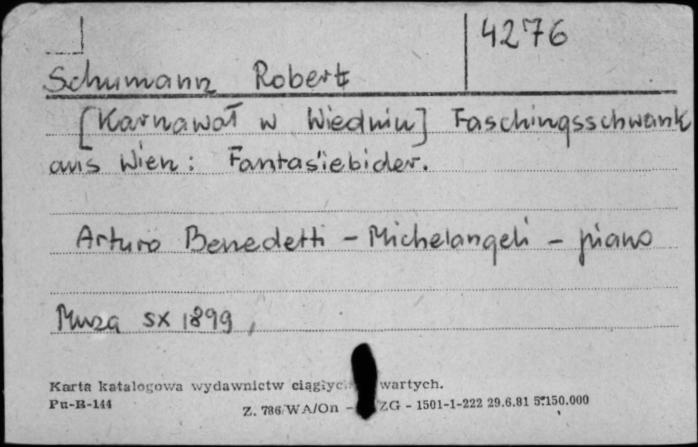 4276
Schumann Robert
[Karnawał w Wiedniu] Faschingsschwank
aus Wien: Fantasiebider.
Arturo Benedetti - Michelangeli - piano
Muza SX 1899,
Karta katalogowa wydawnictw ciągłyc wartych.
Pu-R-144
Z. 786/WA/On - ZG - 1501-1-222 29.6.81 5.150.000